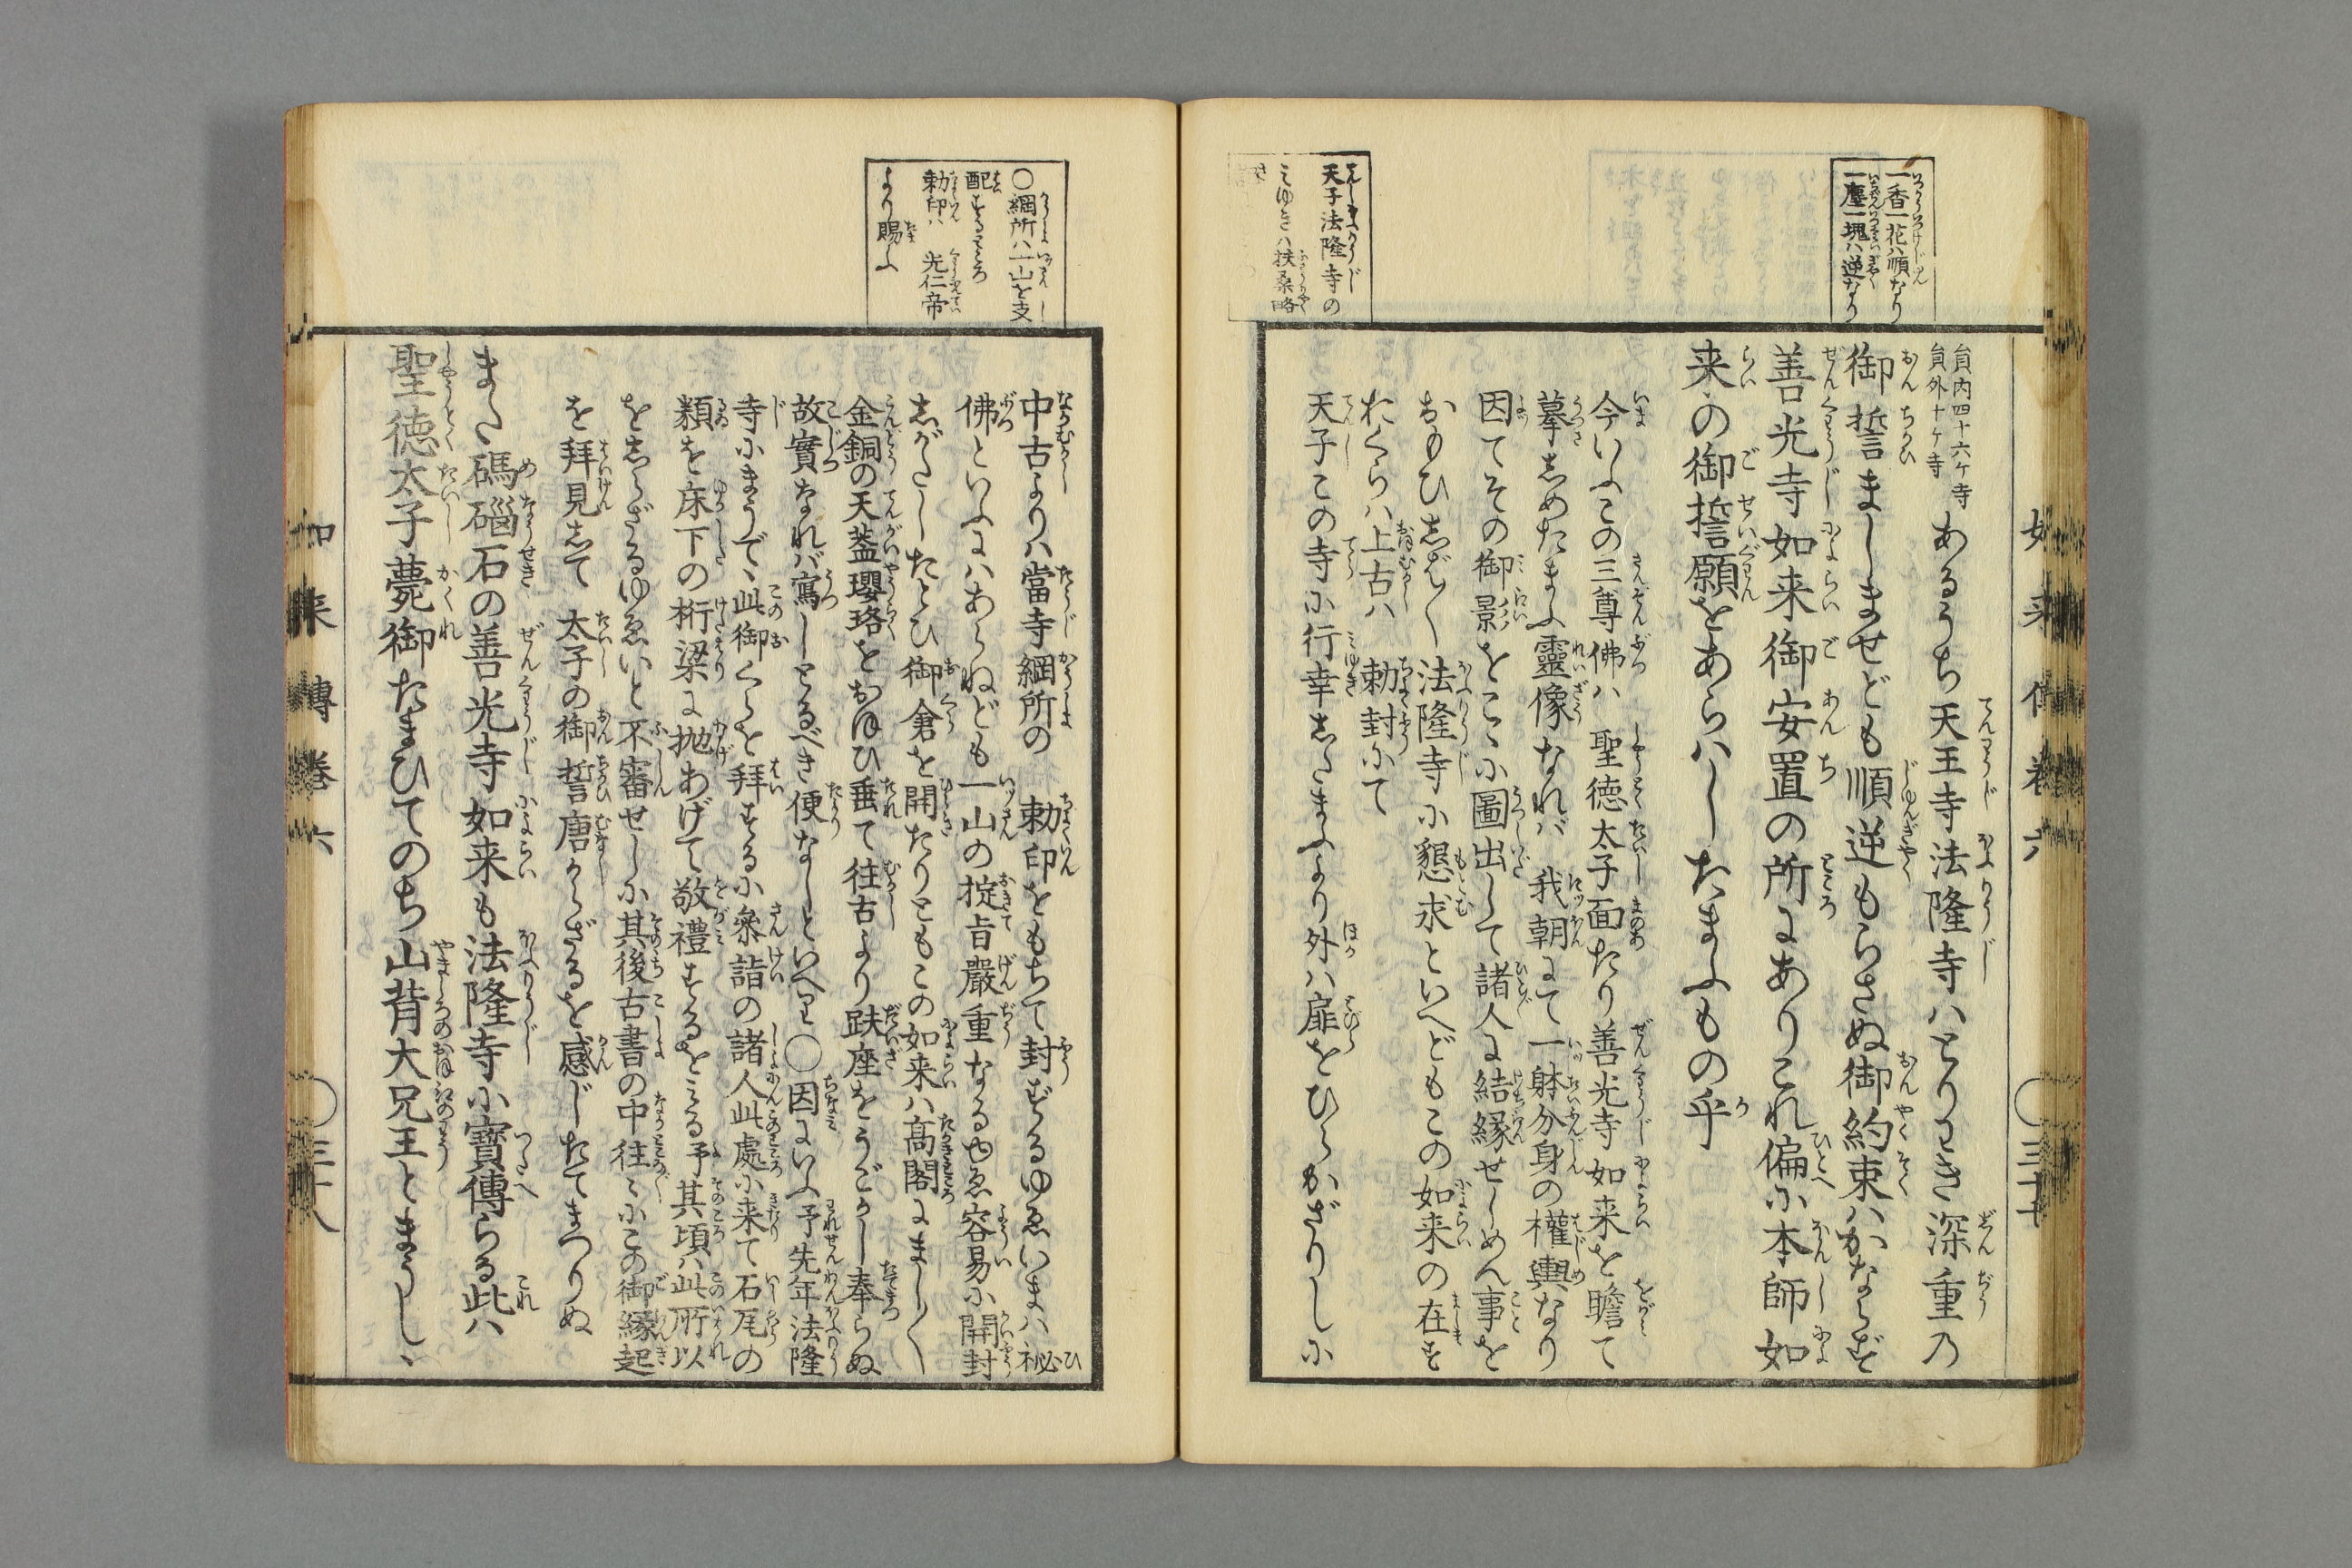 一香一花ハ順なり
一塵一塊ハ逆なり
天子法隆寺の
みゆきハ扶桑略
如来傳巻六
〇三十七
貟内四十六ケ寺
貟外十ケ寺
あるうち天王寺法隆寺ハとりわき深重の
御誓ましませども順逆もらさぬ御約束ハかならず
善光寺如来御安置の所にありこれ偏に本師如
来の御誓願をあらハしたまふもの乎
今いふこの三尊佛ハ　聖徳太子面たり善光寺如来を瞻て
摹しめたまふ靈像なれバ　我朝にて一躰分身の權輿なり
因てその御影をこゝに圖出して諸人に結縁せしめん事を
おもひしば〳〵法隆寺に懇求といへどもこの如来の在す
おくらハ上古ハ　勅封にて
天子この寺に行幸したまふより外ハ扉をひらかざりしに
〇綱所ハ一山を支
配するところ
勅印ハ　光仁帝
より賜ふ
中古よりハ當寺綱所の　勅印をもちて封ずるゆゑいまハ祕
佛といふにハあらねども一山の掟旨嚴重なるゆゑ容易に開封
しがたしたとひ御倉を開たりともこの如来ハ高閣にまし〳〵
金銅の天葢瓔珞をおほひ垂て往古より趺座をうごかし奉らぬ
故實なれバ寫しとるべき便なしといへり〇因にいふ予先年法隆
寺にまうで、此御くらを拝するに叅詣の諸人此處に来て石瓦の
類を床下の桁梁に抛あげて敬禮するをみる予其頃ハ此所以
をしらざるゆゑいと不審せしに其後古書の中往〻にこの御縁起
を拝見して　太子の御誓唐からざるを感じたてまつりぬ
また碼碯石の善光寺如来も法隆寺に寶傳らる此ハ
聖徳太子薨御たまひてのち山背大兄王とまうしゝ
如来傳巻六
〇三十八